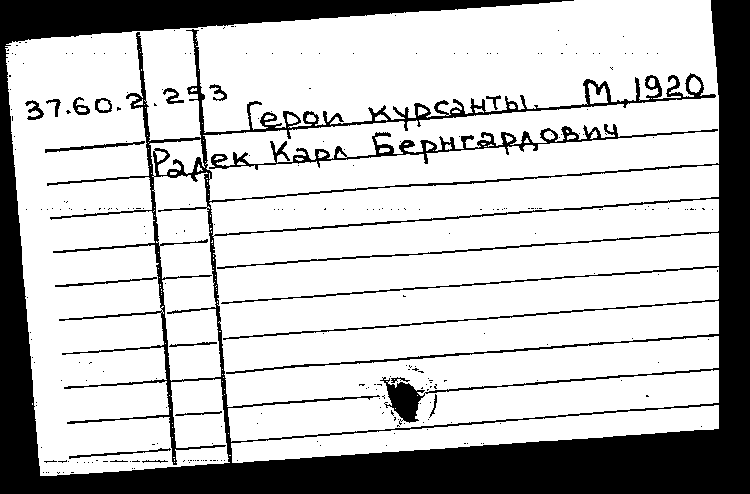 37.60.2.253 Герои курсанты. М., 1920
Радек, Карл Бернгардович